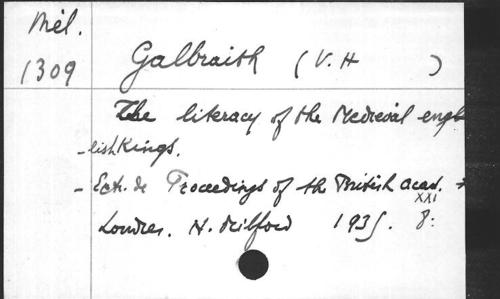 Mél.
1309
Galbraith (V. H )
The literacy of the Medieval engl
-lish Kings.
- Extr. de Proceedings of the British acad. +
XXI
Londres. H. Milford 1935. 8: